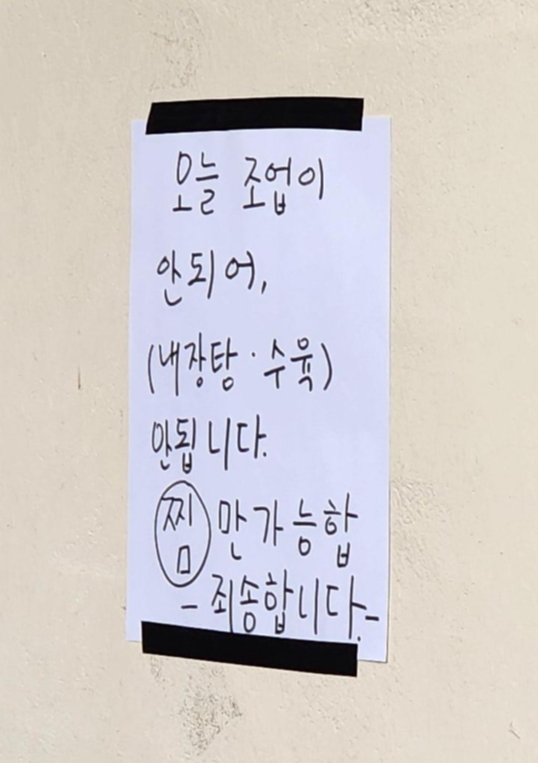 오늘 조업이
안되어,
(내장탕·수육)
안됩니다.
찜만가능합
-죄송합니다.-